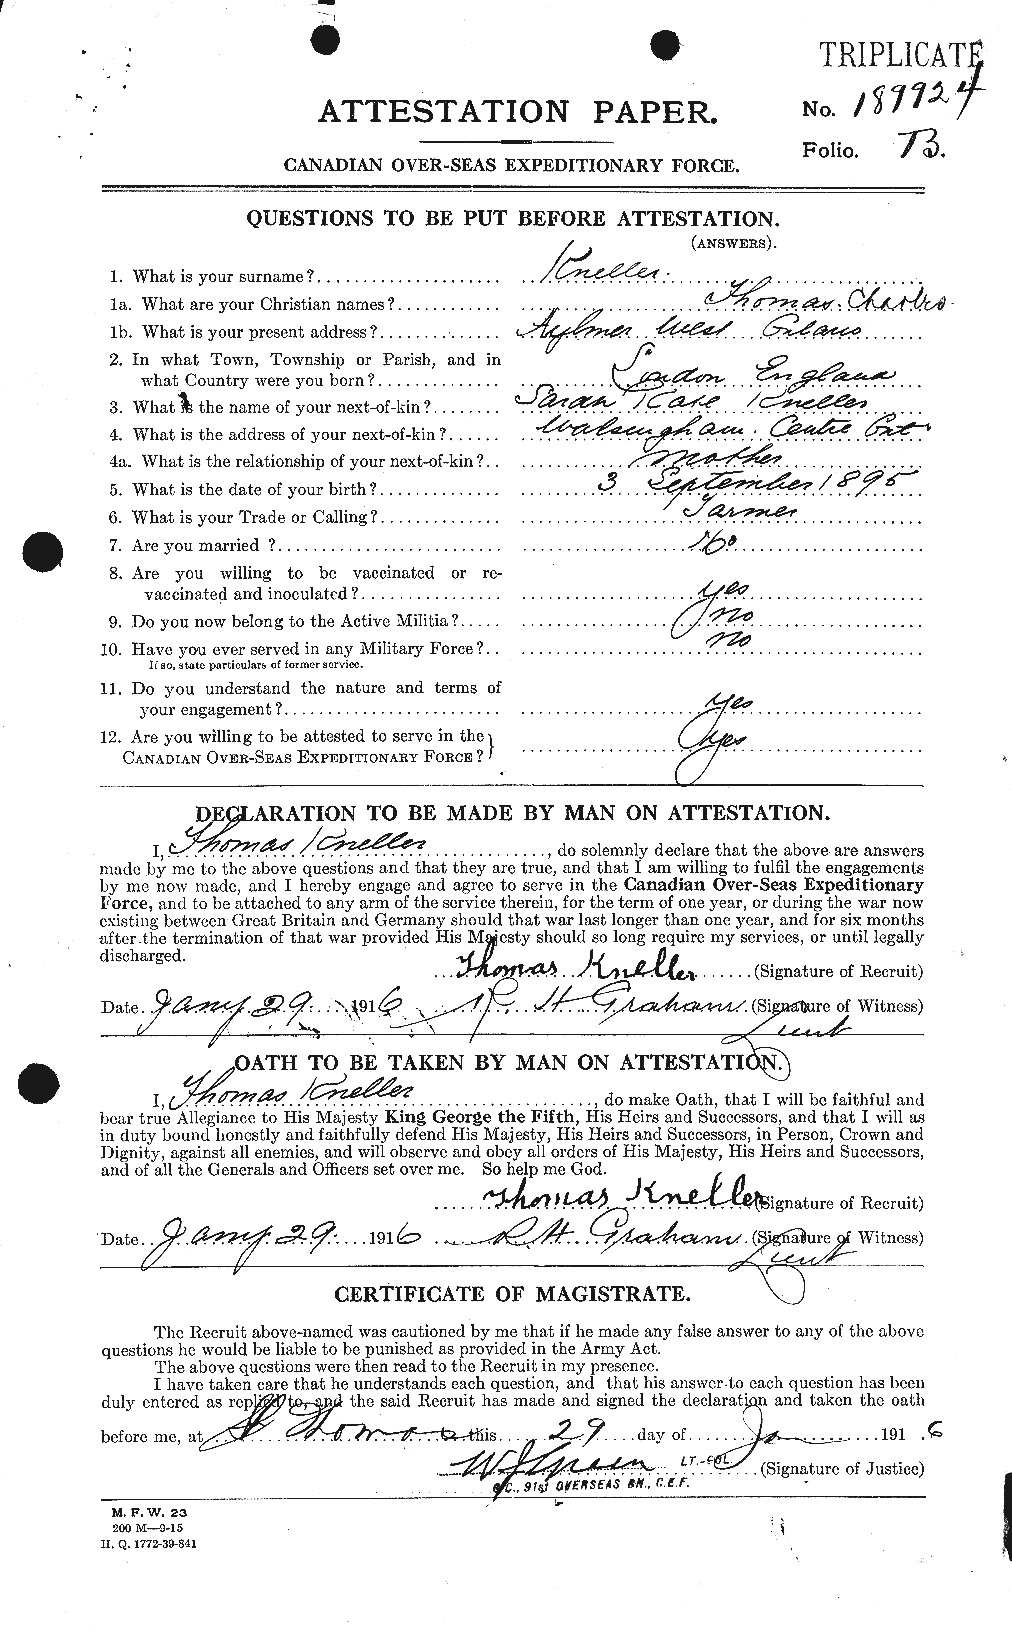 TRIPLICATE
ATTESTATION PAPER.
No. 189924
Folio. B.
CANADIAN OVER-SEAS EXPEDITIONARY FORCE.
QUESTIONS TO BE PUT BEFORE ATTESTATION.
(ANSWERS).
1. What is your surname? Kneller.
1a. What are your Christian names? Thomas Charles
1b. What is your present address? Aylmer West
2. In what Town, Township or Parish, and in
what Country were you born? London England
3. What is the name of your next-of-kin? Sarah Kate Kneller
4. What is the address of your next-of-kin? Walsingham Centre Ont
4a. What is the relationship of your next-of-kin? Mother
5. What is the date of your birth? 3 September 1895
6. What is your Trade or Calling? Farmer
7. Are you married? No
8. Are you willing to be vaccinated or re-
vaccinated and inoculated? Yes
9. Do you now belong to the Active Militia? no
10. Have you ever served in any Military Force? no
If so, state particulars of former service.
11. Do you understand the nature and terms of
your engagement? Yes
12. Are you willing to be attested to serve in the
CANADIAN OVER-SEAS EXPEDITIONARY FORCE? Yes
DECLARATION TO BE MADE BY MAN ON ATTESTATION.
I, Thomas Kneller, do solemnly declare that the above are answers
made by me to the above questions and that they are true, and that I am willing to fulfil the engagements
by me now made, and I hereby engage and agree to serve in the Canadian Over-Seas Expeditionary
Force, and to be attached to any arm of the service therein, for the term of one year, or during the war now
existing between Great Britain and Germany should that war last longer than one year, and for six months
after the termination of that war provided His Majesty should so long require my services, or until legally
discharged.
Thomas Kneller (Signature of Recruit)
Date. Jany 29 1916 R. H. Graham (Signature of Witness)
Lieut
OATH TO BE TAKEN BY MAN ON ATTESTATION.
I, Thomas Kneller, do make Oath, that I will be faithful and
bear true Allegiance to His Majesty King George the Fifth, His Heirs and Successors, and that I will as
in duty bound honestly and faithfully defend His Majesty, His Heirs and Successors, in Person, Crown and
Dignity, against all enemies, and will observe and obey all orders of His Majesty, His Heirs and Successors,
and of all the Generals and Officers set over me. So help me God.
Thomas Kneller (Signature of Recruit)
Date. Jany 29 1916 R. H. Graham (Signature of Witness)
Lieut
CERTIFICATE OF MAGISTRATE.
The Recruit above-named was cautioned by me that if he made any false answer to any of the above
questions he would be liable to be punished as provided in the Army Act.
The above questions were then read to the Recruit in my presence.
I have taken care that he understands each question, and that his answer to each question has been
duly entered as replied to, and the said Recruit has made and signed the declaration and taken the oath
before me, at St Thomas this 29 day of Ja 1916
W J Green LT.-COL. (Signature of Justice)
O.C., 91st OVERSEAS BN., C.E.F.
M. F. W. 23
200 M—9-15
H. Q. 1772-39-841